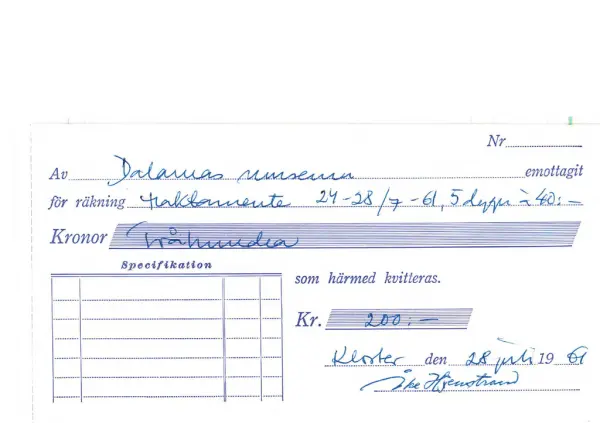 Nr
Av Dalarnas museum emottagit
för räkning traktamente 24-28/7-61, 5 dygn à 40:-
Kronor Tvåhundra
Specifikation
som härmed kvitteras.
Kr. 200:-
Kloster den 28 juli 1961
Åke Hjenstrand